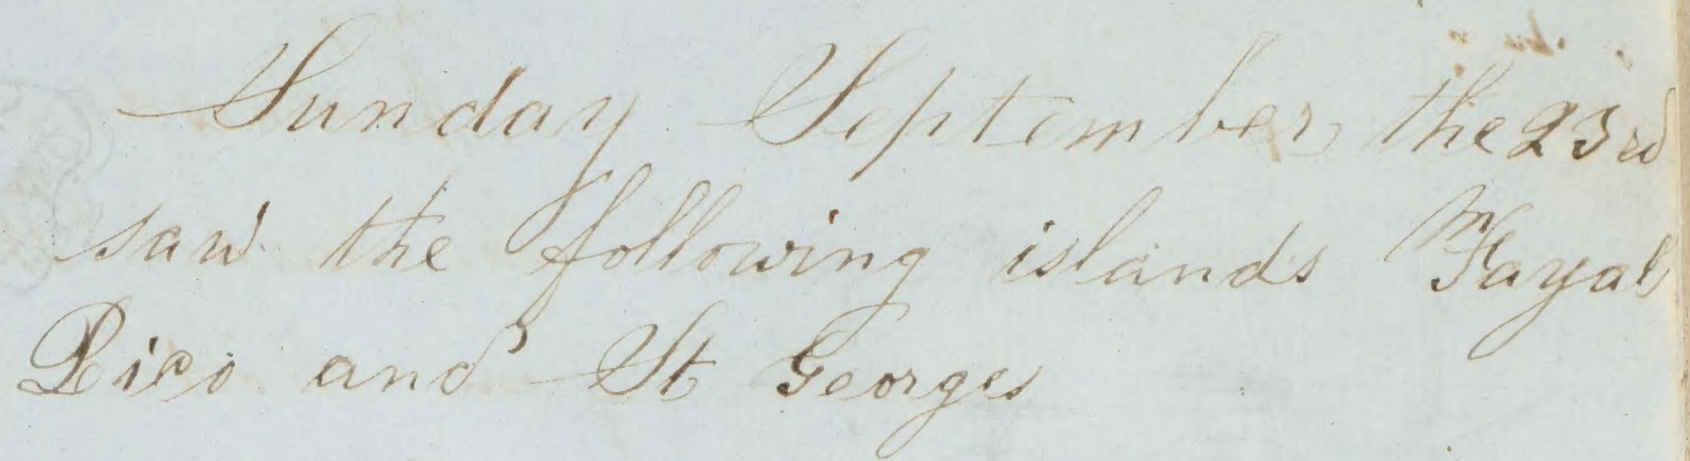 Sunday September the 23rd
saw the following islands Fayal
Pico and St Georges